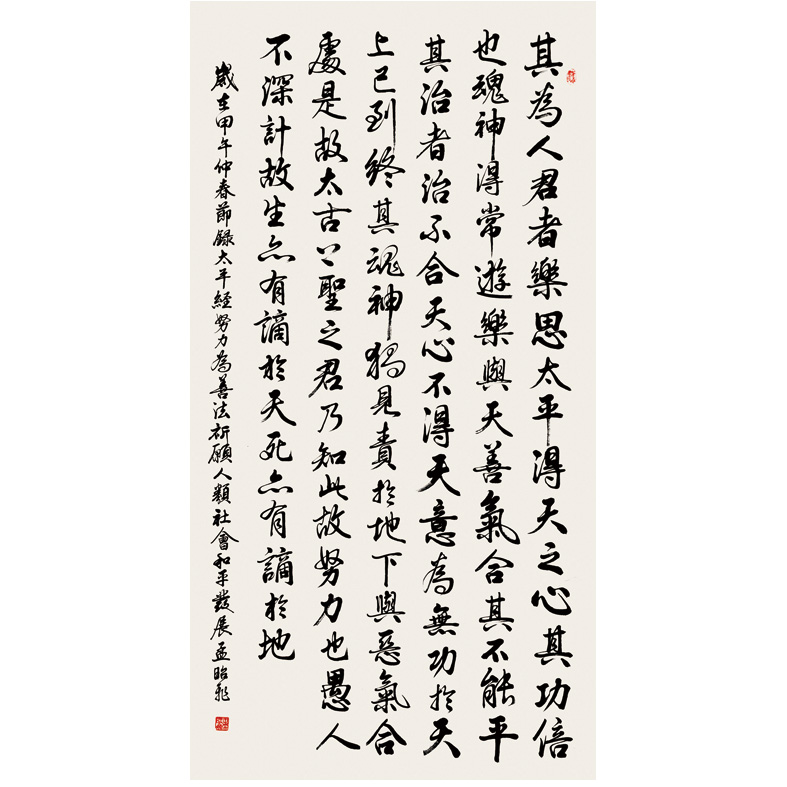 其為人君者樂思太平得天之心其功倍
也魂神得常遊樂與天善氣合其不能平
其治者治不合天心不得天意為無功於天
上已到終其魂神獨見責於地下與惡氣合
處是故太古上聖之君乃知此故努力也愚人
不深計故生亦有謫於天死亦有謫於地
歲在甲午仲春節錄太平經努力為善法祈願人類社會和平發展孟昭飛